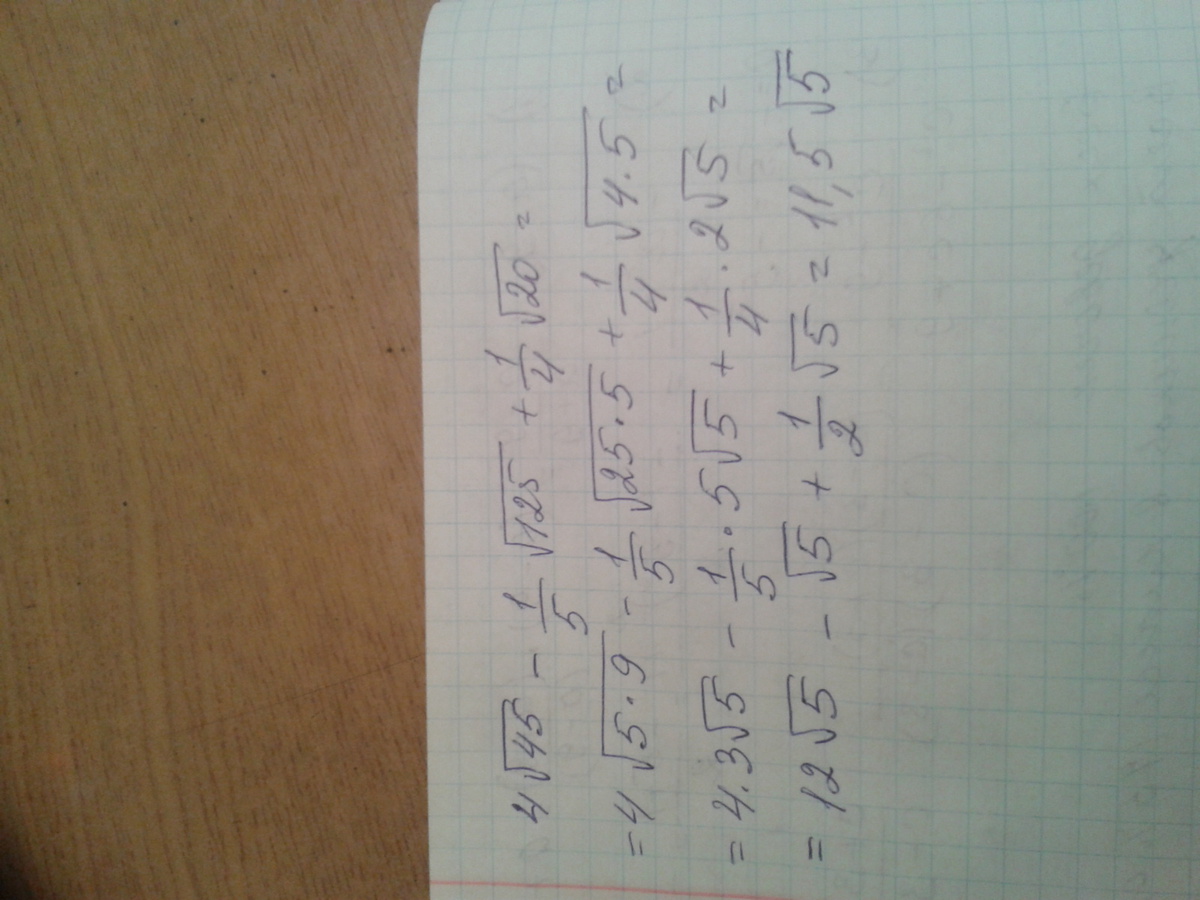 4√45 - 1/5 √125 + 1/4 √20 =
= 4 √5·9 - 1/5 √25·5 + 1/4 √4·5 =
= 4·3√5 - 1/5 · 5√5 + 1/4 · 2√5 =
= 12√5 - √5 + 1/2 √5 = 11,5 √5